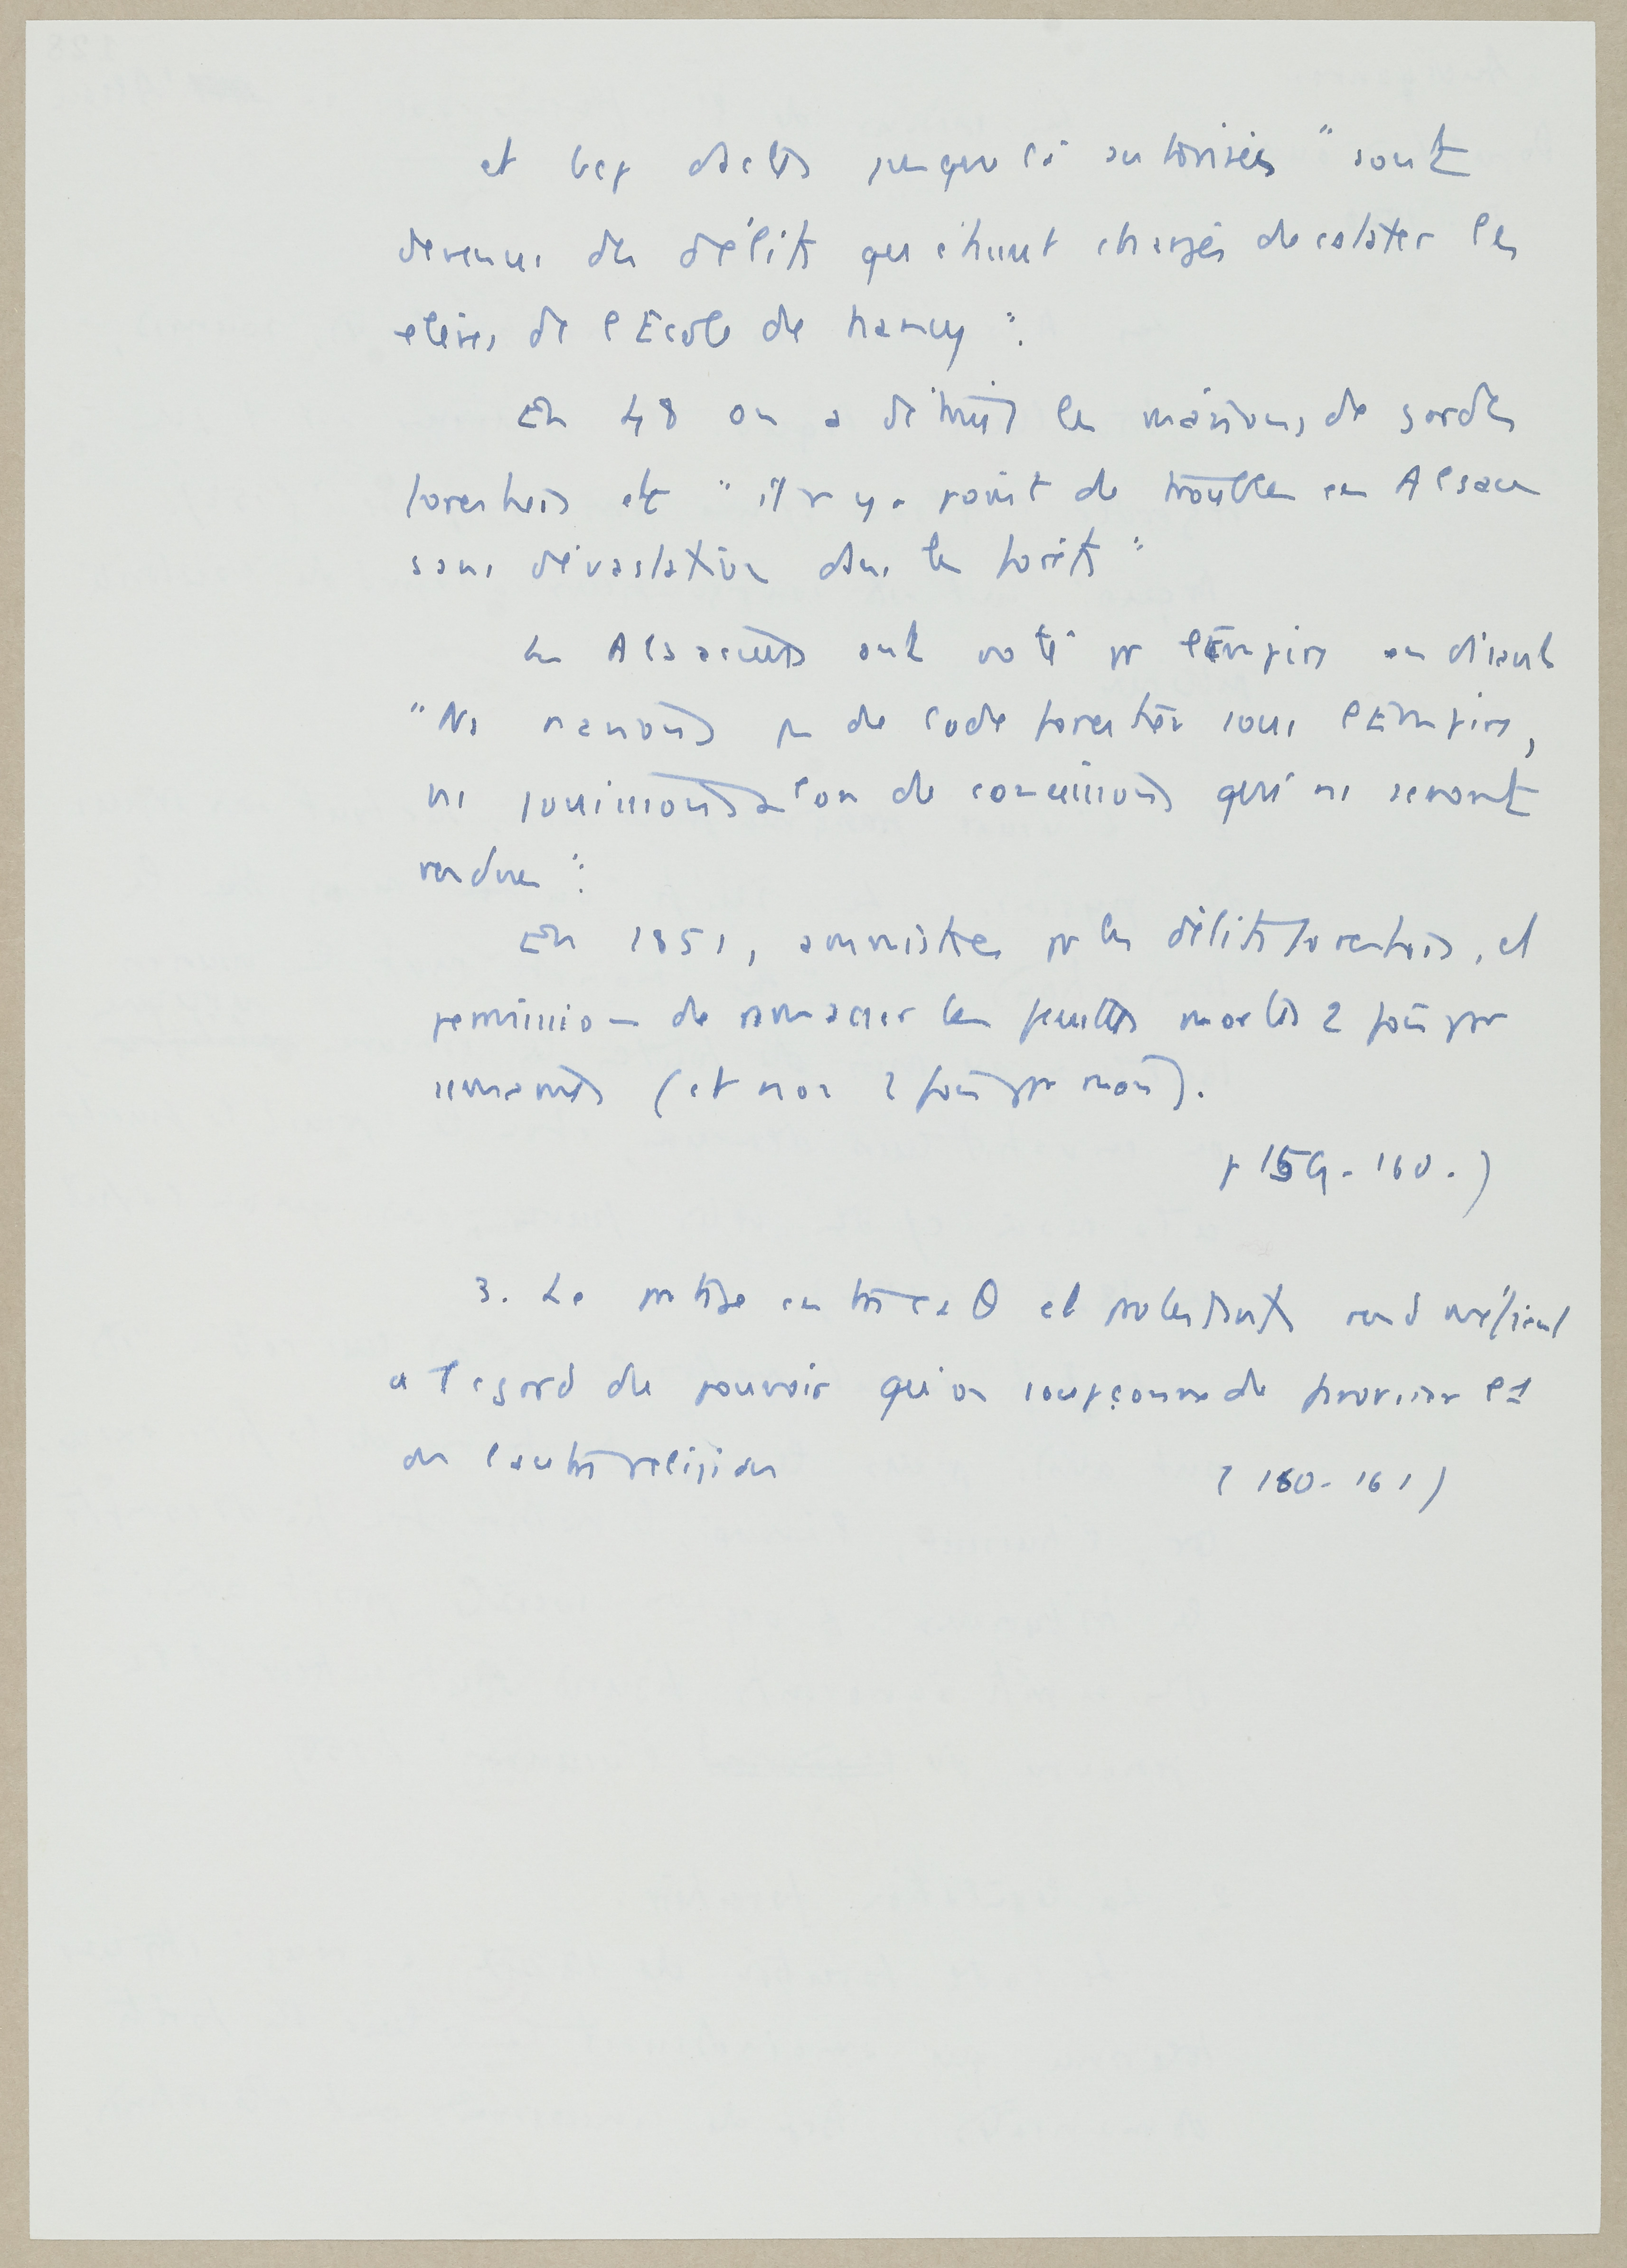 et bcp d'actes jusque là autorisés "sont
devenus des délits que étaient chargés de constater les
élèves de l'Ecole de Nancy".
En 48 on a détruit les maisons de gardes
forestiers et "il n y a point de troubles en Alsace
sans dévastation dans les forêts"
Les Alsaciens ont voté pr l'Empire en disant
"Ns n'avions pas de code forestier sous l'Empire,
ns jouissions alors de concessions qui ns seront
rendues".
En 1851, amnisties pr les délits forestiers, et
permission de ramasser les feuilles mortes 2 fois par
semaines (et non 2 fois par mois).
p 159-160.)
3. Le partage entre cath et protestants rend méfiant
a l'egard du pouvoir qu'on soupçonne de favoriser
l'autre religion
(160-161)